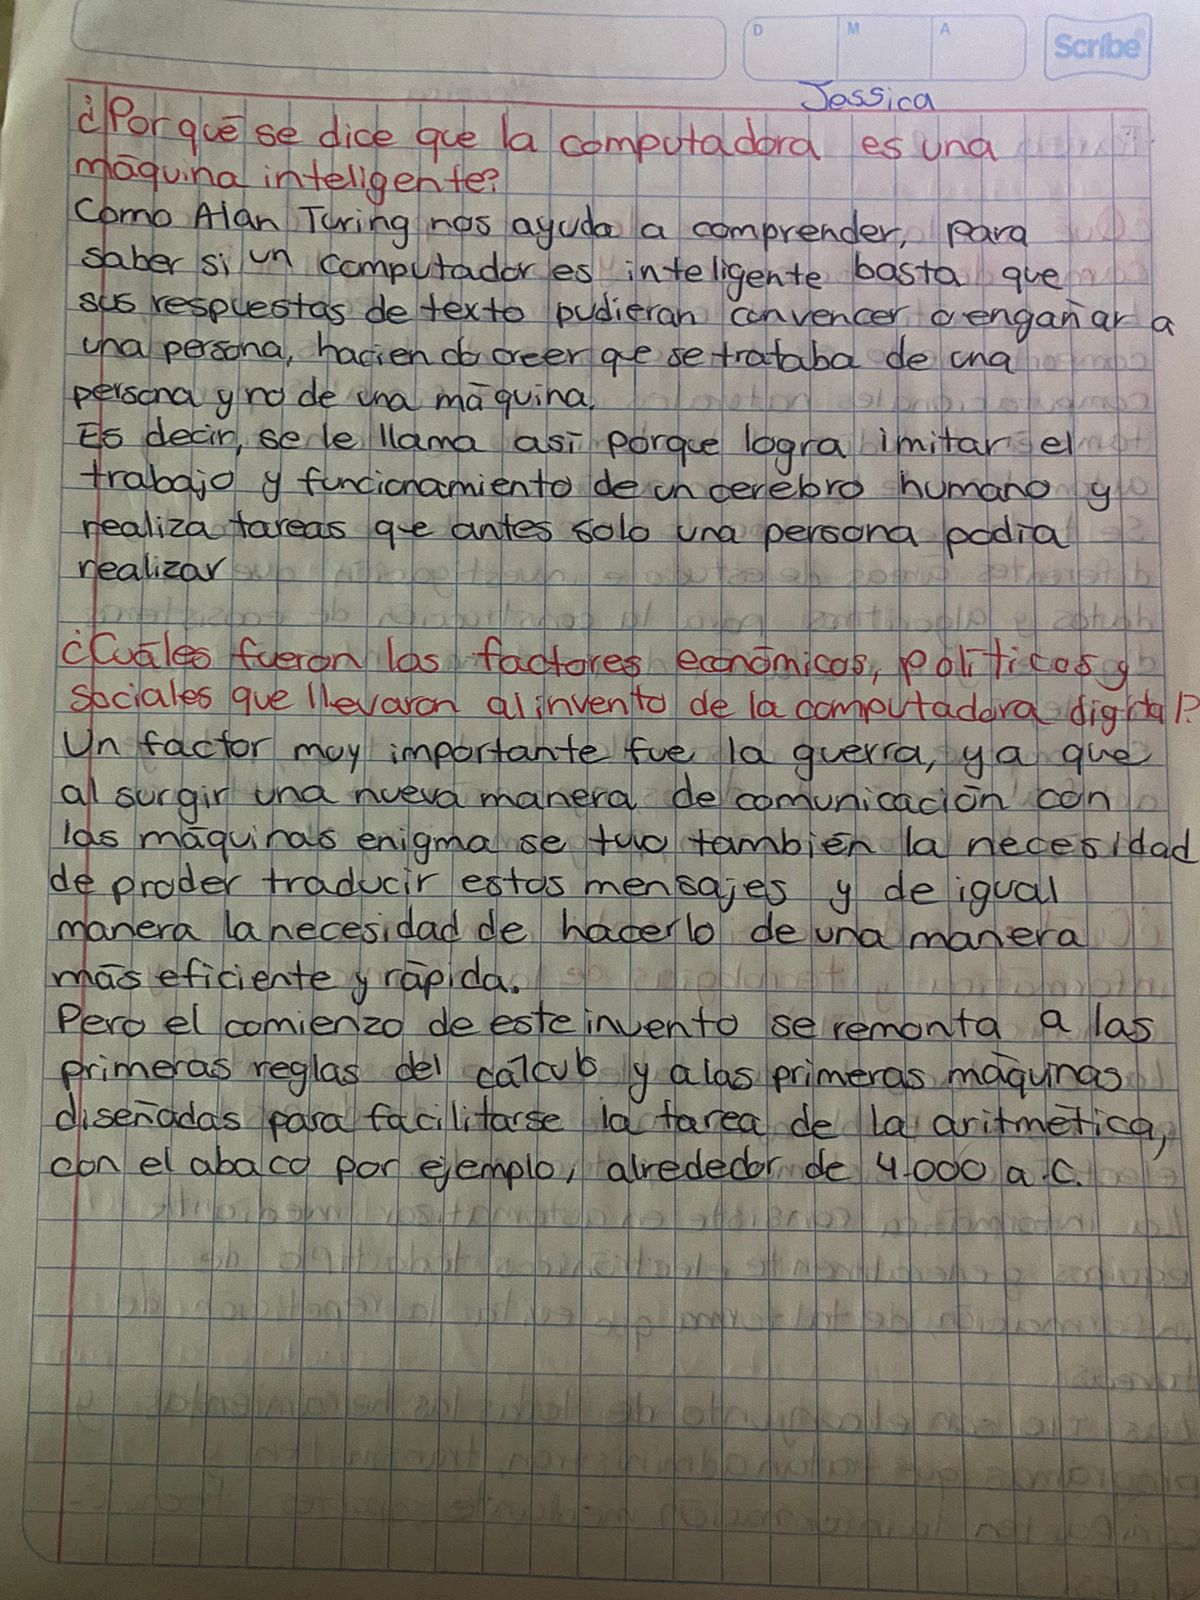 D M A
Scribe
Jessica
¿Por qué se dice que la computadora es una
máquina inteligente?
Como Alan Turing nos ayuda a comprender, para
saber si un computador es inteligente basta que
sus respuestas de texto pudieran convencer o engañar a
una persona, haciendo creer que se trataba de una
persona y no de una máquina.
Es decir, se le llama así porque logra imitar el
trabajo y funcionamiento de un cerebro humano y
realiza tareas que antes solo una persona podía
realizar
¿Cuáles fueron los factores económicos, políticos y
sociales que llevaron al invento de la computadora digital?
Un factor muy importante fue la guerra, ya que
al surgir una nueva manera de comunicación con
las máquinas enigma se tuvo también la necesidad
de proder traducir estos mensajes y de igual
manera la necesidad de hacerlo de una manera
más eficiente y rápida.
Pero el comienzo de este invento se remonta a las
primeras reglas del cálculo y a las primeras máquinas
diseñadas para facilitarse la tarea de la aritmética,
con el abaco por ejemplo, alrededor de 4.000 a.C.